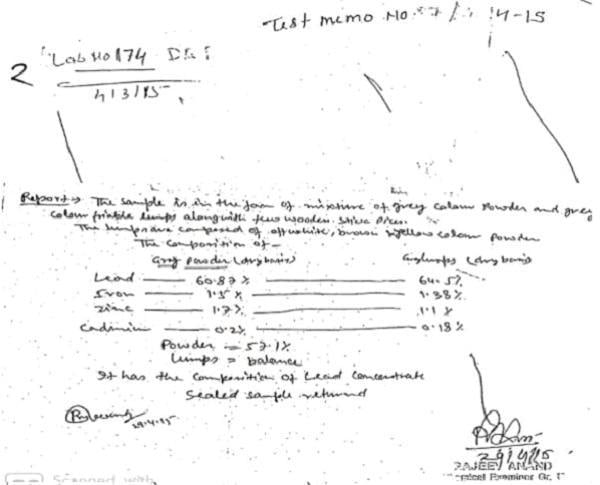 Test memo No. 14-15
2
Lab No 174
4/3/15
Report → The sample is in the form of mixture of grey colour powder and grey
colour friable lumps alongwith few wooden
The lumps are composed of offwhite, brown yellow colour powder
The composition of -
Grey powder (dry basis) Grey lumps (dry basis)
Lead — 60.87 % — 64.5%
Iron — 1.5 % — 1.38%
Zinc — 1.7% — 1.1 %
Cadmium — 0.2% — 0.18 %
Powder = 57.1%
Lumps = balance
It has the composition of Lead Concentrate
Sealed sample returned
29.4.15
29/4/15
RAJEEV ANAND
Gr. I
Scanned with